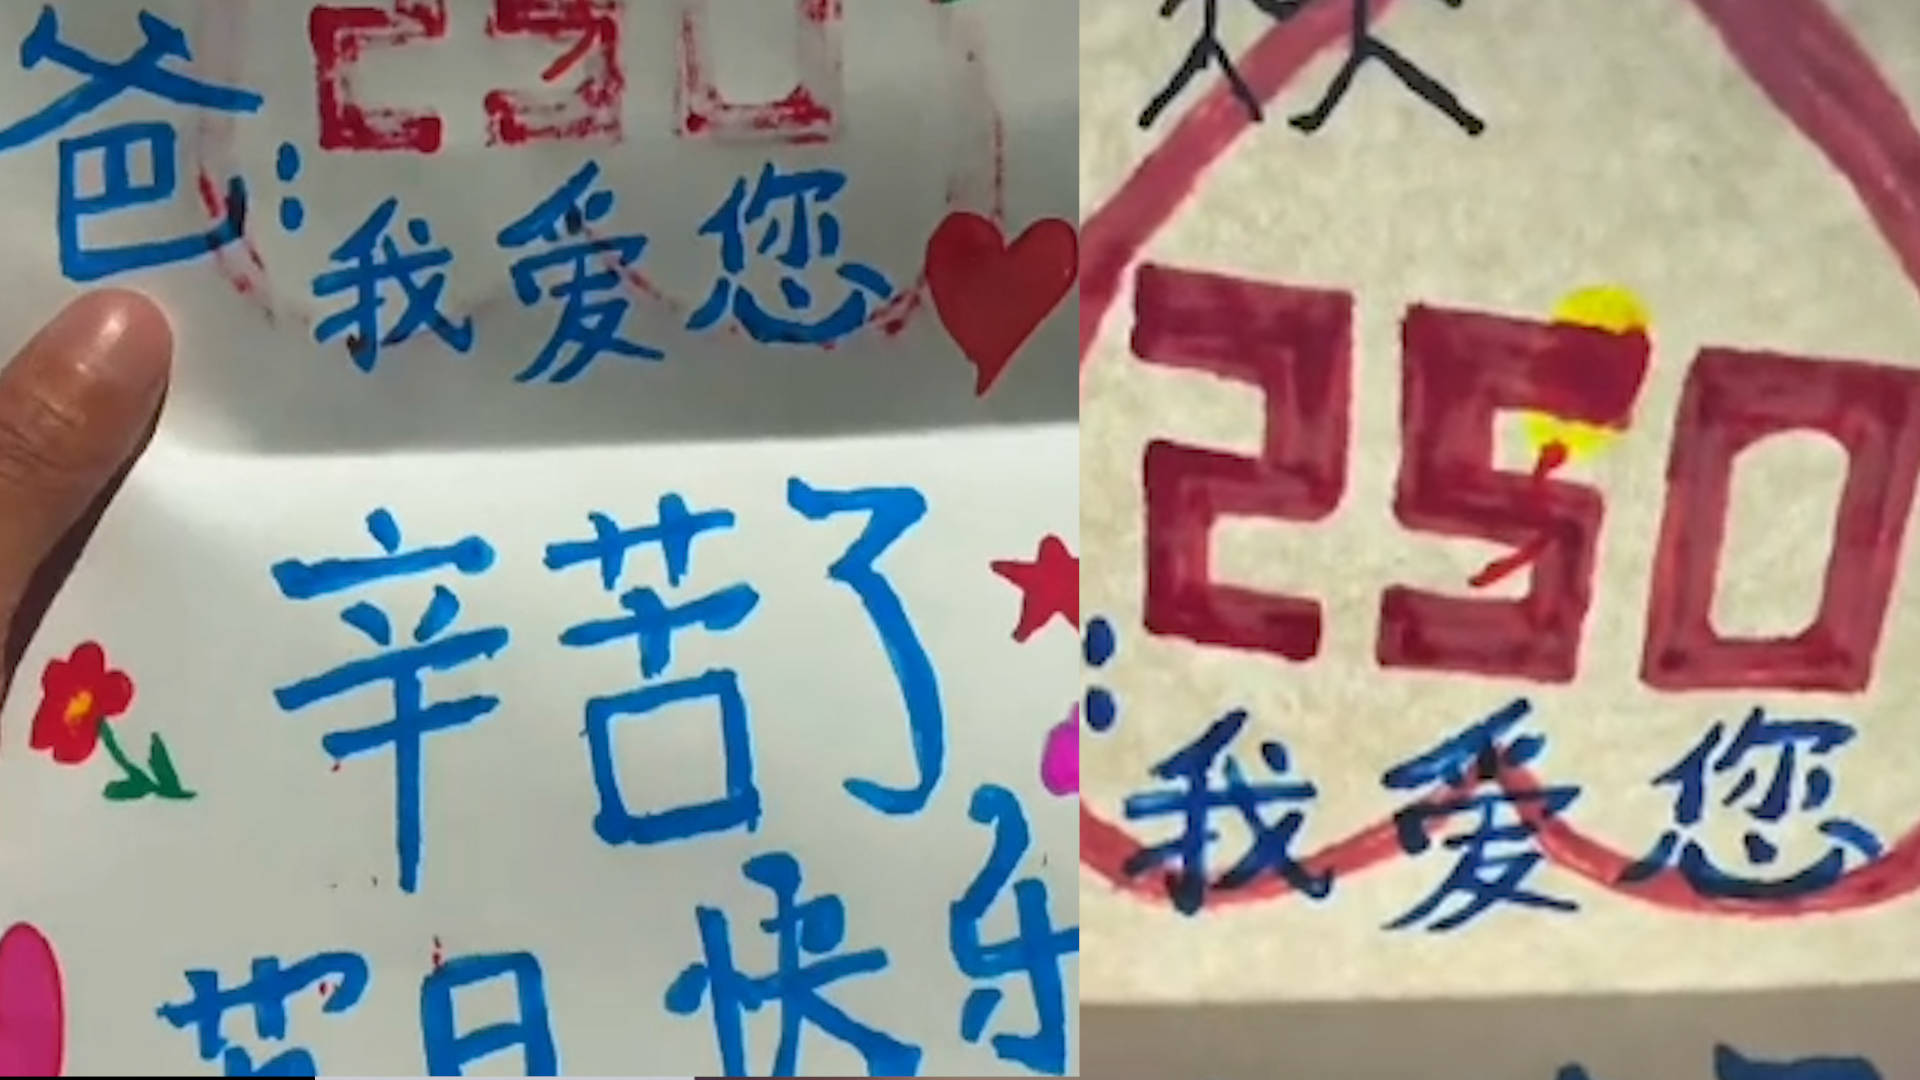 爸：
250
我爱您
辛苦了，
节日快乐
250
：
我爱您